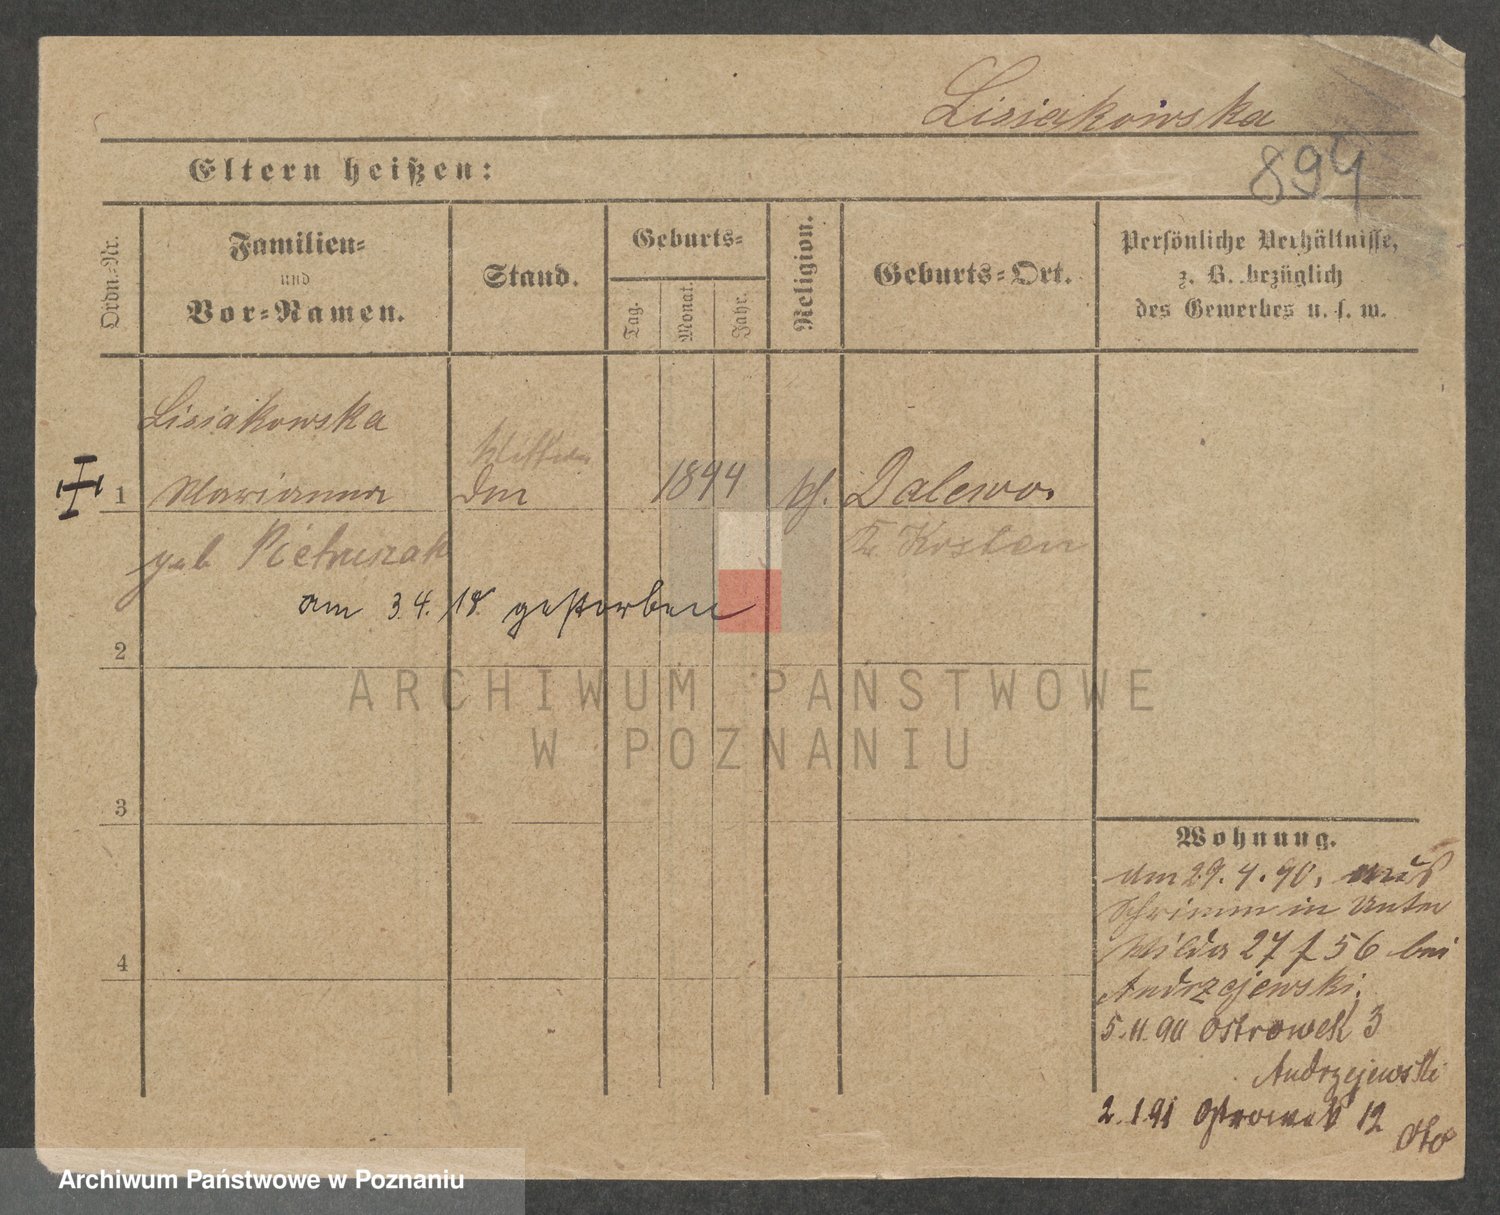 Lisiakowska
894
Eltern heißen:
Ordn.=Nr.
Familien=
und
Vor=Namen.
Stand.
Geburts=
Tag.
Monat.
Jahr.
Religion.
Geburts=Ort.
Persönliche Verhältnisse,
z. B. bezüglich
des Gewerbes u. s. w.
Lisiakowska
1 Marianna
geb Pietruszak
1894
Dalewo
Kr. Kosten
am 3.4.18 gestorben
2
3
4
Wohnung.
am 29.4.90, aus
Schrimm in Unter
Wilda 27 f 56 bei
Andrzejewski,
5.11.90 Ostrowek 3
Andrzejewski
2.1.91 Ostrowek 12
ARCHIWUM PAŃSTWOWE
W POZNANIU
Archiwum Państwowe w Poznaniu